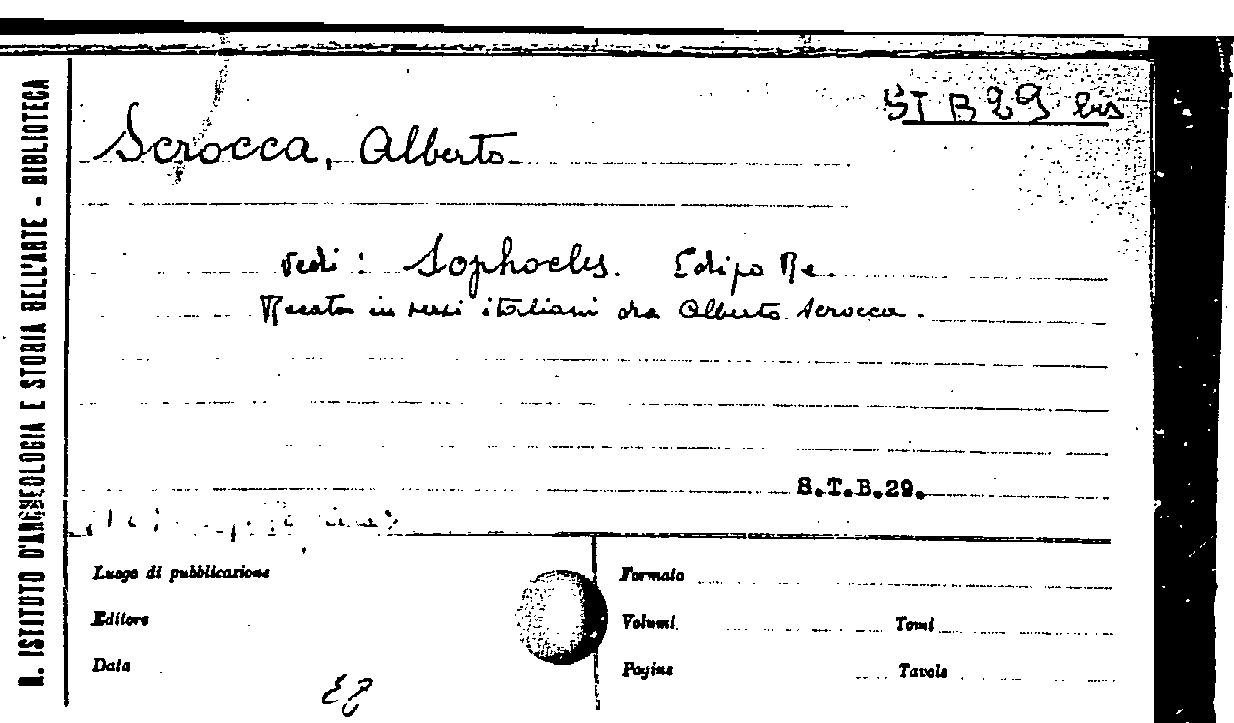 R. ISTITUTO D'ARCHEOLOGIA E STORIA DELL'ARTE - BIBLIOTECA
ST B 29 bis
Scrocca, Alberto
vedi: Sophocles. Edipo Re.
Recato in versi italiani da Alberto Scrocca.
S.T.B.29.
Luogo di pubblicazione
Editore
Data
Formato
Volumi
Tomi
Pagine
Tavole